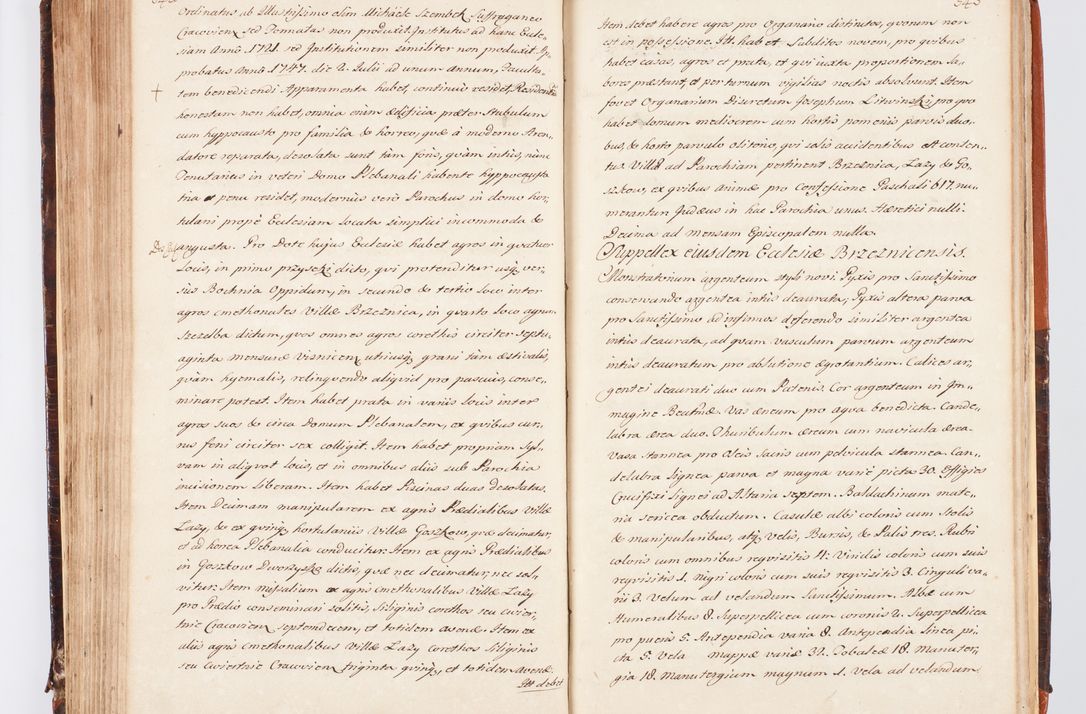 Ordinatus ab Illustissimo olim Michäele Szembek Suffraganeo
Cracovien, sed Formatas non produxit, Institutus ad hanc Eccle,
siam Anno 1721. sed Institutionem similiter non produxit. Ap,
probatus Anno 1747. die 2. Julii ad unum Annum, Faculta,
tem benedicendi Apparamenta habet, continuò residet, Residentiã
honestam non habet, omnia enim ædificia præter stubulum
cum hyppocausto pro familia & horreo, quæ à moderno Aren,
datore reparata, desolata sunt tàm foris, quàm intus, nunc
Tenutarius in veteri Domo Plebanali habente hyppocausta
tria et penu residet, modernus verò Parochus in domo hor,
tulani propè Ecclesiam locata simplici incommoda &
angusta. Pro Dote hujus Ecclesiæ habet agros in quatuor
locis, in primo przyseki dicto, qui protenditur usq ver,
sus Bochnia Oppidum, in secundo & tertio loco inter
agros cmethonales Villæ Brzeznica, in quarto loco agrum
Szezdba dictum, quos omnes agros corethis circiter septu,
aginta mensuræ Visnicen, utriusq grani tàm æstivalis,
quàm hyemalis, relinquendo aliquid pro pascuis, conse,
minare potest. Item habet prata in variis locis inter
agros suos & circa Domum Plebanalem, ex quibus cur,
rus feni circiter sex colligit. Item habet propriam Syl,
vam in aliquot locis, et in omnibus aliis sub Parochia
incisionem liberam. Item habet Piscinas duas desolatas.
Item Decimam manipularem ex agris Prædialibus Villæ
Lazy, & ex quinq hortulaniis Villæ Goszkow, quæ decimatur,
et ad horrea Plebanalia conducitur. Item ex agris Prædialibus
in Goszkow Dworzyska dictis, quæ nec decimatur, nec sol,
vitur. Item missalium ex agris cmethonalibus Villæ Lazy
pro Prædio conseminari solitis, Siliginis corethos seu cwier,
tnie Cracovien, septemdecem, et totidem avenæ. Item ex
aliis agris cmethonalibus Villæ Lazy corethos Siliginis
seu cwiertnie Cracovien, triginta quinq, et totidem avenæ
Itt debet
Item debet habere agros pro Organario distinctos, quorum non
est in possessione. Itt. habet Subditos novem, pro quibus
habet casas, agros et prata, et qui iuxta proportionem la,
bores præstant, et per turnum vigilias noctis absolvunt. Item
fovet Organarium Discretum Josephum Litwinski, pro quo
habet domum mediocrem cum hortis pomeriis parvis duo,
bus, & horto parvulo olitorio, qui solis accidentibus est conten,
tus. Villæ ad Parochiam pertinent Brzeznica, Lazy & Go,
szkow, ex quibus Animæ pro Confessione Paschali 617. nu,
merantur. Judæus in hac Parochia unus. Hæretici nulli.
Decima ad mensam Episcopalem nulla.
Suppellex eiusdem Ecclesiæ Brzeznicensis.
Monstratorium argenteum styli novi. Pyxis pro Sanctissimo
conservando argentea intùs deaurata; Pyxis altera parva
pro Sanctissimo ad infirmos deferendo similiter argentea
intùs deaurata, ad quam vasculum parvum argenteum
intùs deauratum pro ablutione ægrotantium. Calices ar,
gentei deaurati duo cum Patenis. Cor argenteum in Im,
magine Beatmæ. Vas æneum pro aqua benedicta. Cande,
labra ærea duo. Thuribulum æreum cum navicula ærea.
Vasa stannea pro Oleis Sacris cum pelvicula stannea. Can,
delabra lignea parva et magna variè picta 30. Effigies
Crucifixi lignei ad Altaria septem. Baldachinum mate,
ria sericea obductum. Casulæ albi coloris cum Stolis
& manipularibus, atq velis, Bursis, & Palis tres. Rubri
coloris cum omnibus requisitis 4. Viridis coloris cum suis
requisitis 1. Nigri coloris cum suis requisitis 3. Cinguli va,
rii 3. Velum ad velandum Sanctissimum. Albæ cum
Humeralibus 8. Superpellicea cum coronis 2. Superpellicea
pro pueris 5. Antependia varia 8. Antependia linea pi,
cta 5. Vela mappæ variæ 32. Tobaleæ 18. Manuter,
gia 18. Manutergium magnum 1. Vela ad velandum